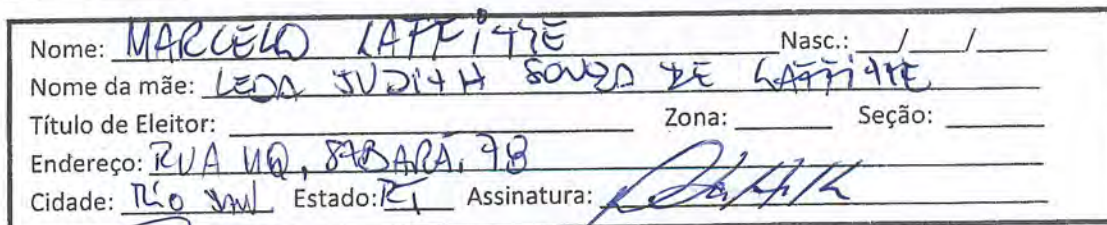 Nome: MARCELO LAFFITTE Nasc.: __/__/__
Nome da mãe: LEDA JUDITH SOUZA DE LAFFITTE
Título de Eleitor: ____ Zona: ____ Seção: ____
Endereço: RUA MQ. SABARÁ, 78
Cidade: Rio Estado: RJ Assinatura: